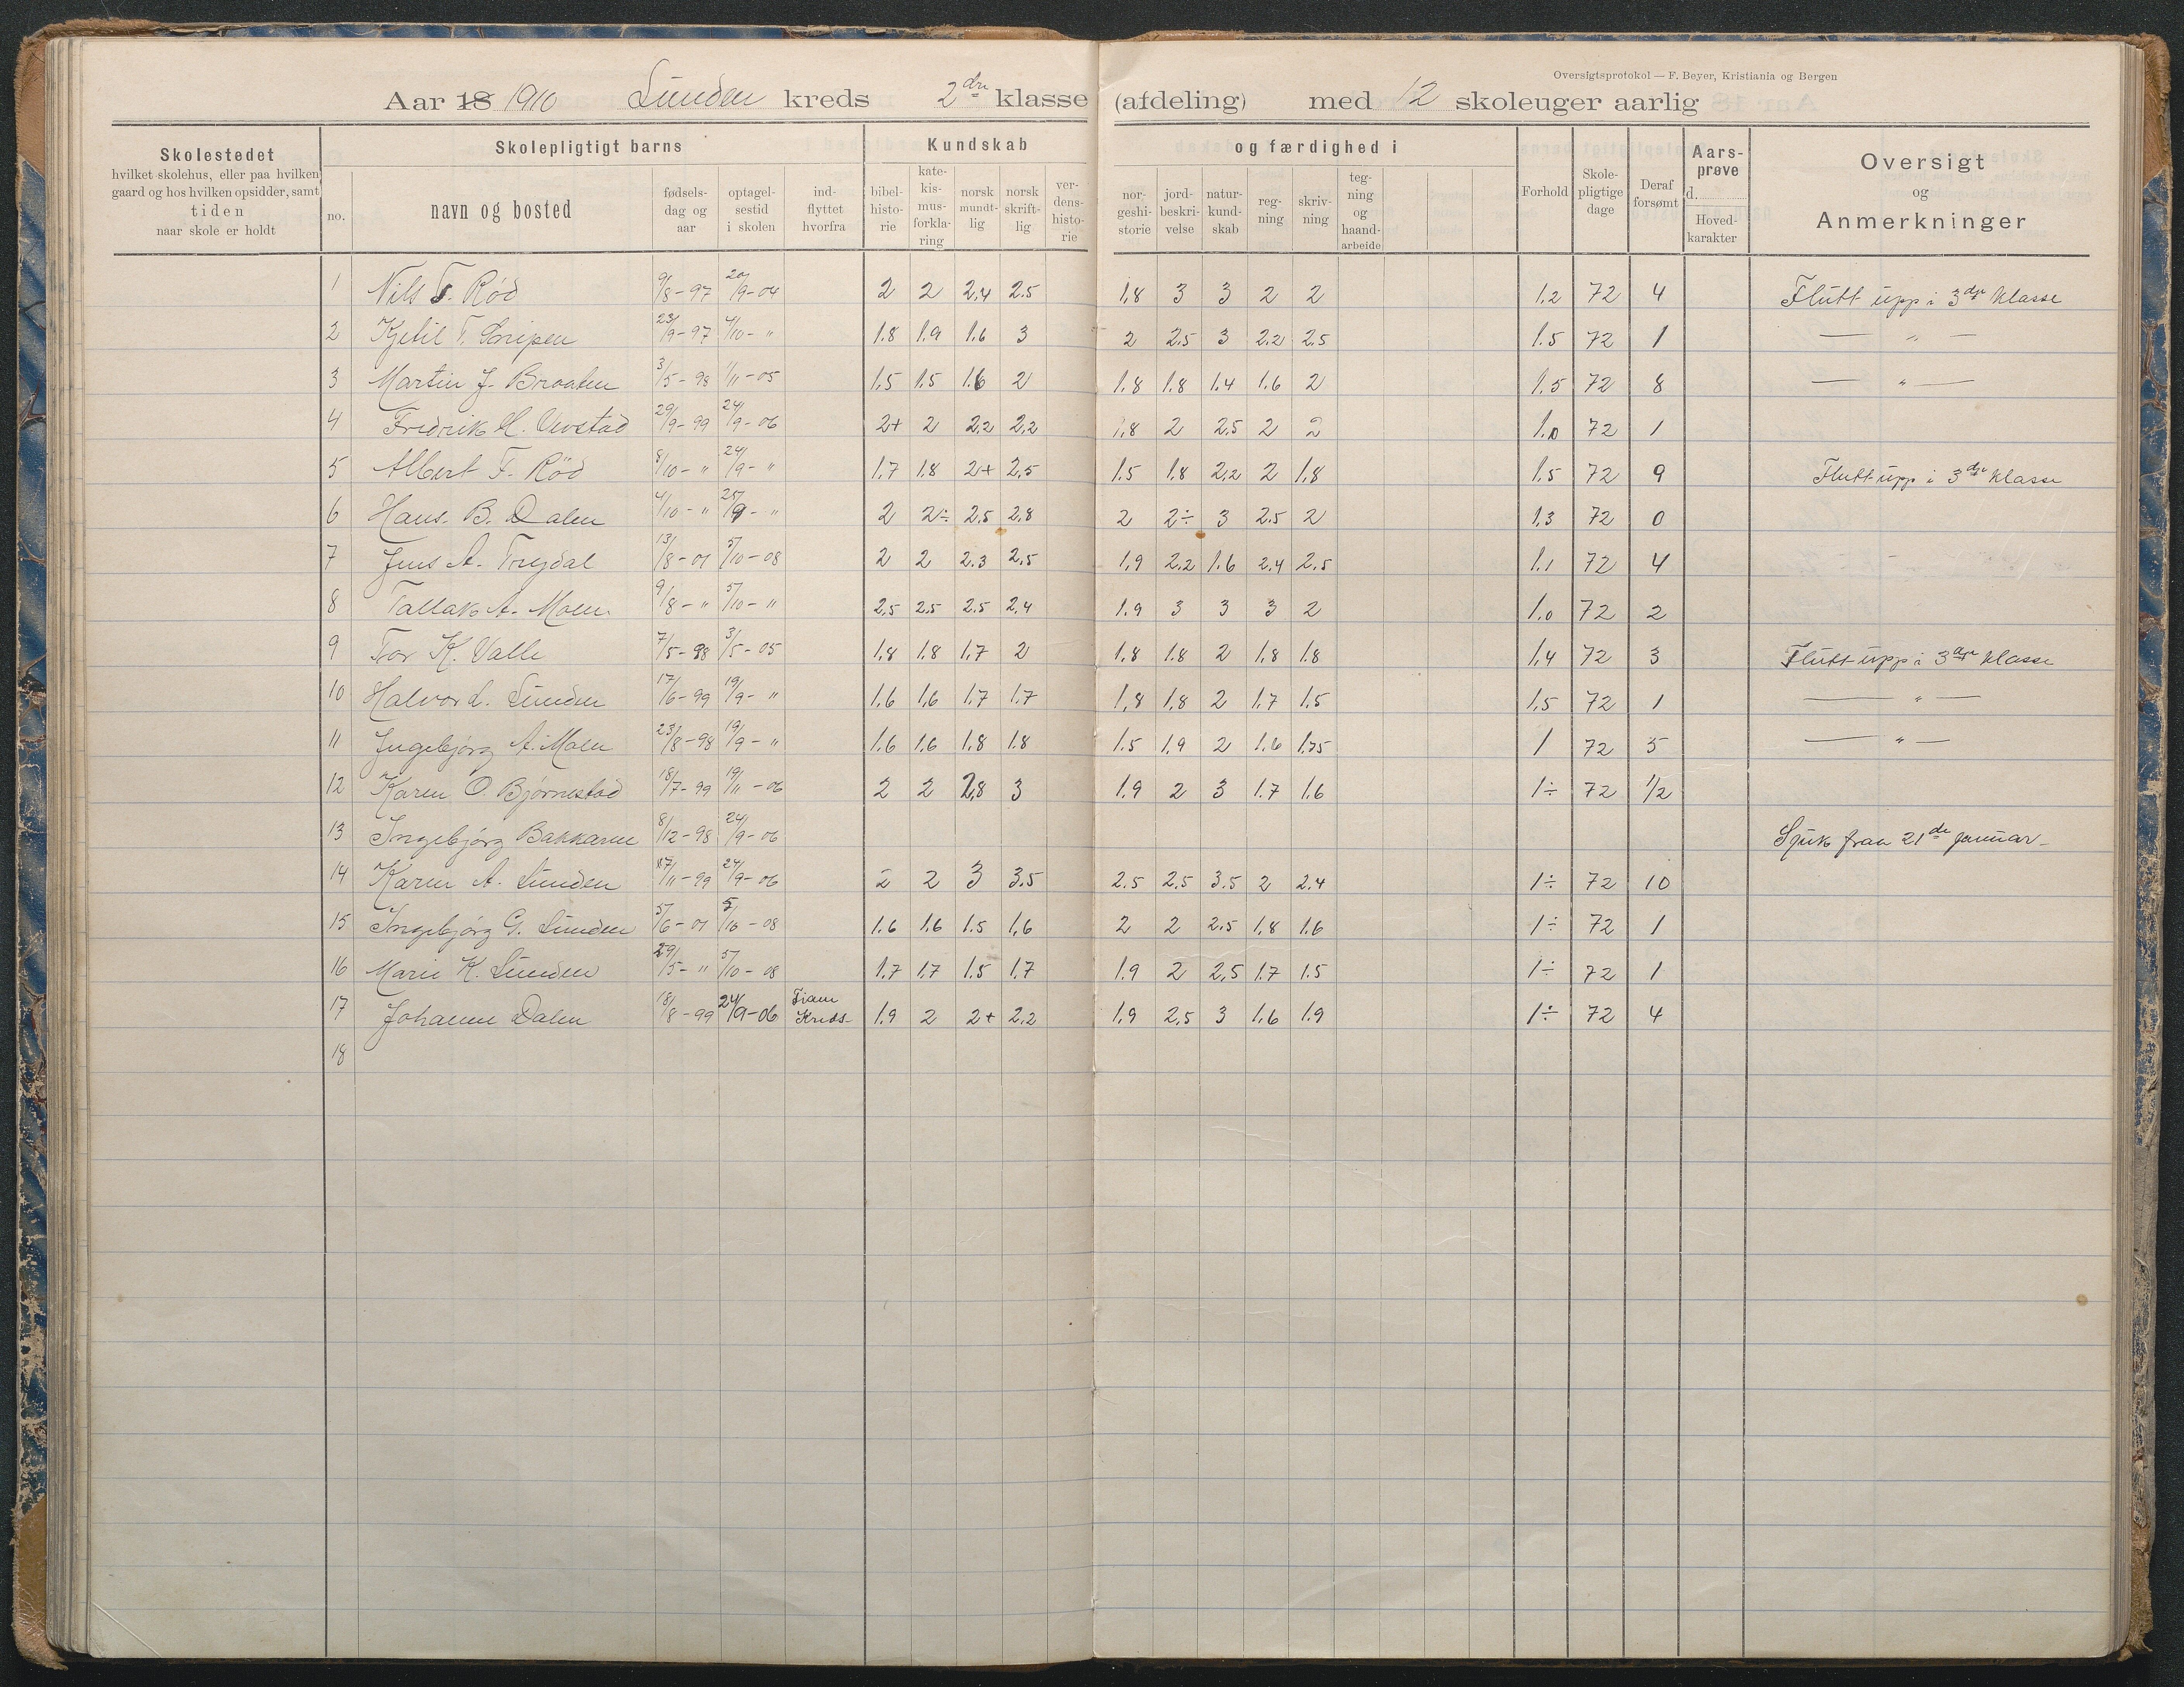 Oversigtsprotokol — F. Beyer, Kristiania og Bergen
Aar 18 1910 Lunden kreds 2dre klasse (afdeling) med 12 skoleuger aarlig
Skolestedet
hvilket skolehus, eller paa hvilken
gaard og hos hvilken opsidder, samt
tiden
naar skole er holdt
Skolepligtigt barns
no.
navn og bosted
fødsels-
dag og
aar
optagel-
sestid
i skolen
ind-
flyttet
hvorfra
Kundskab
bibel-
histo-
rie
kate-
kis-
mus-
forkla-
ring
norsk
mundt-
lig
norsk
skrift-
lig
ver-
dens-
histo-
rie
og færdighed i
nor-
geshi-
storie
jord-
beskri-
velse
natur-
kund-
skab
reg-
ning
skriv-
ning
teg-
ning
og
haand-
arbeide
Forhold
Skole-
pligtige
dage
Deraf
forsømt
Aars-
prøve
d.
Hoved-
karakter
Oversigt
og
Anmerkninger
1 Nils T. Rød 9/8-97 20/9-04 2 2 2,4 2.5 1,8 3 3 2 2 1.2 72 4 Flutt upp i 3dje klasse
2 Kjetil T. 23/9-97 4/10-" 1.8 1.9 1.6 3 2 2.5 3 2.2 2.5 1.5 72 1 — " —
3 Martin J. Braaten 3/5-98 1/11-05 1,5 1.5 1.6 2 1.8 1.8 1.4 1.6 2 1.5 72 8 — " —
4 Fredrik H. 29/9-99 24/9-06 2+ 2 2,2 2,2 1,8 2 2.5 2 2 1.0 72 1
5 Albert F. Rød 8/10-" 24/9-" 1.7 1.8 2+ 2,5 1.5 1.8 2,2 2 1,8 1.5 72 9 Flutt upp i 3dje klasse
6 Hans. B. Dalen 4/10-" 25/9-" 2 2÷ 2.5 2,8 2 2÷ 3 2.5 2 1.3 72 0
7 Jens A. Trydal 13/8-01 5/10-08 2 2 2.3 2,5 1.9 2.2 1.6 2.4 2.5 1.1 72 4
8 Tallak A. Moen 9/8-" 5/10-" 2,5 2.5 2.5 2,4 1.9 3 3 3 2 1.0 72 2
9 Tor K. Valle 7/5-98 3/5-05 1.8 1.8 1.7 2 1.8 1.8 2 1,8 1.8 1,4 72 3 Flutt upp i 3dje klasse
10 Halvor L. Lunden 17/6-99 19/9-" 1.6 1,6 1.7 1.7 1,8 1,8 2 1.7 1.5 1,5 72 1 — " —
11 Ingebjørg A. Moen 23/8-98 19/9-" 1.6 1.6 1.8 1.8 1.5 1,9 2 1.6 1.75 1 72 5 — " —
12 Karen O. Bjørnestad 18/7-99 19/11-06 2 2 2,8 3 1.9 2 3 1.7 1.6 1÷ 72 1/2
13 Ingebjørg Bakkane 8/12-98 24/9-06 Sjuk fraa 21de januar
14 Karen A. Lunden 17/11-99 24/9-06 2 2 3 3.5 2.5 2,5 3.5 2 2.4 1÷ 72 10
15 Ingebjørg G. Lunden 5/6-01 5/10-08 1.6 1.6 1.5 1,6 2 2 2.5 1,8 1.6 1÷ 72 1
16 Marie K. Lunden 29/5-" 5/10-08 1.7 1.7 1.5 1.7 1.9 2 2,5 1.7 1.5 1÷ 72 1
17 Johanne Dalen 18/8-99 24/9-06 Kreds- 1.9 2 2+ 2,2 1.9 2,5 3 1,6 1.9 1÷ 72 4
18